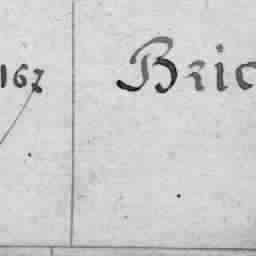 167 Bric